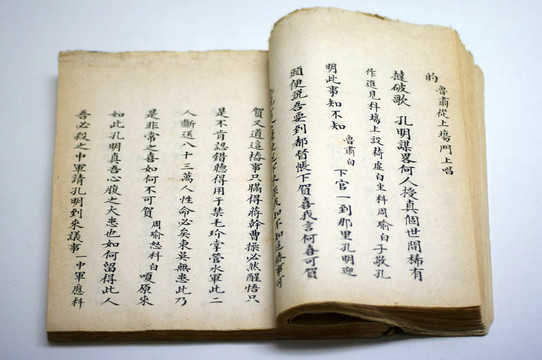 的 魯肅從上場門上唱
撻破歌 孔明謀畧何人授真個世間稀有
作進見科場上設椅虛白坐科周瑜白子敬孔
明此事知不知 魯肅白 下官一到那里孔明迎
頭便說吾要到都督帳下賀喜我言何喜可賀
賀又道這樁事只瞞得蔣幹曹操必然醒悟只
是不肯認錯聽得用于禁毛玠掌管水軍此二
人斷送八十三萬人性命必矣東吳無患此乃
是非常之喜如何不可賀 周瑜怒科白 嗄原來
如此孔明真吾心腹之大患也如何留得此人
吾必殺之中軍請孔明到來議事 一中軍應科